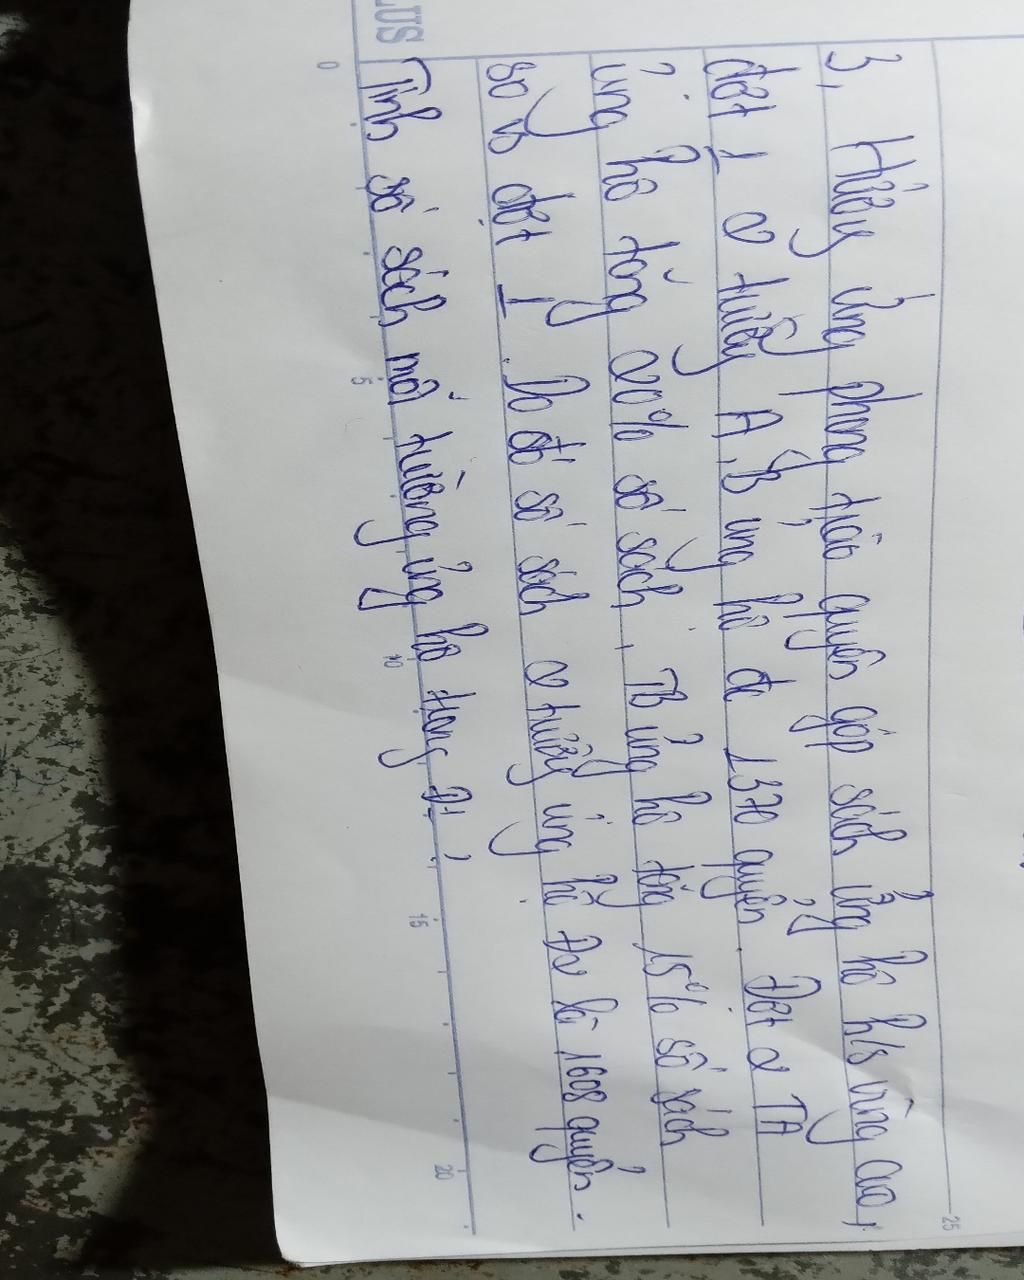 3, Hưởng ứng phong trào quyên góp sách ủng hộ h/s vùng cao,
đợt 1 2 trường A, B ủng hộ đc 1370 quyển. Đợt 2 TA
ủng hộ tăng 20% số sách, TB ủng hộ tăng 15% số sách
so vs đợt 1. Do đó số sách 2 trường ủng hộ Đ2 là 1608 quyển.
Tính số sách mỗi trường ủng hộ trong Đ1
LUS
0
5
10
15
20
25